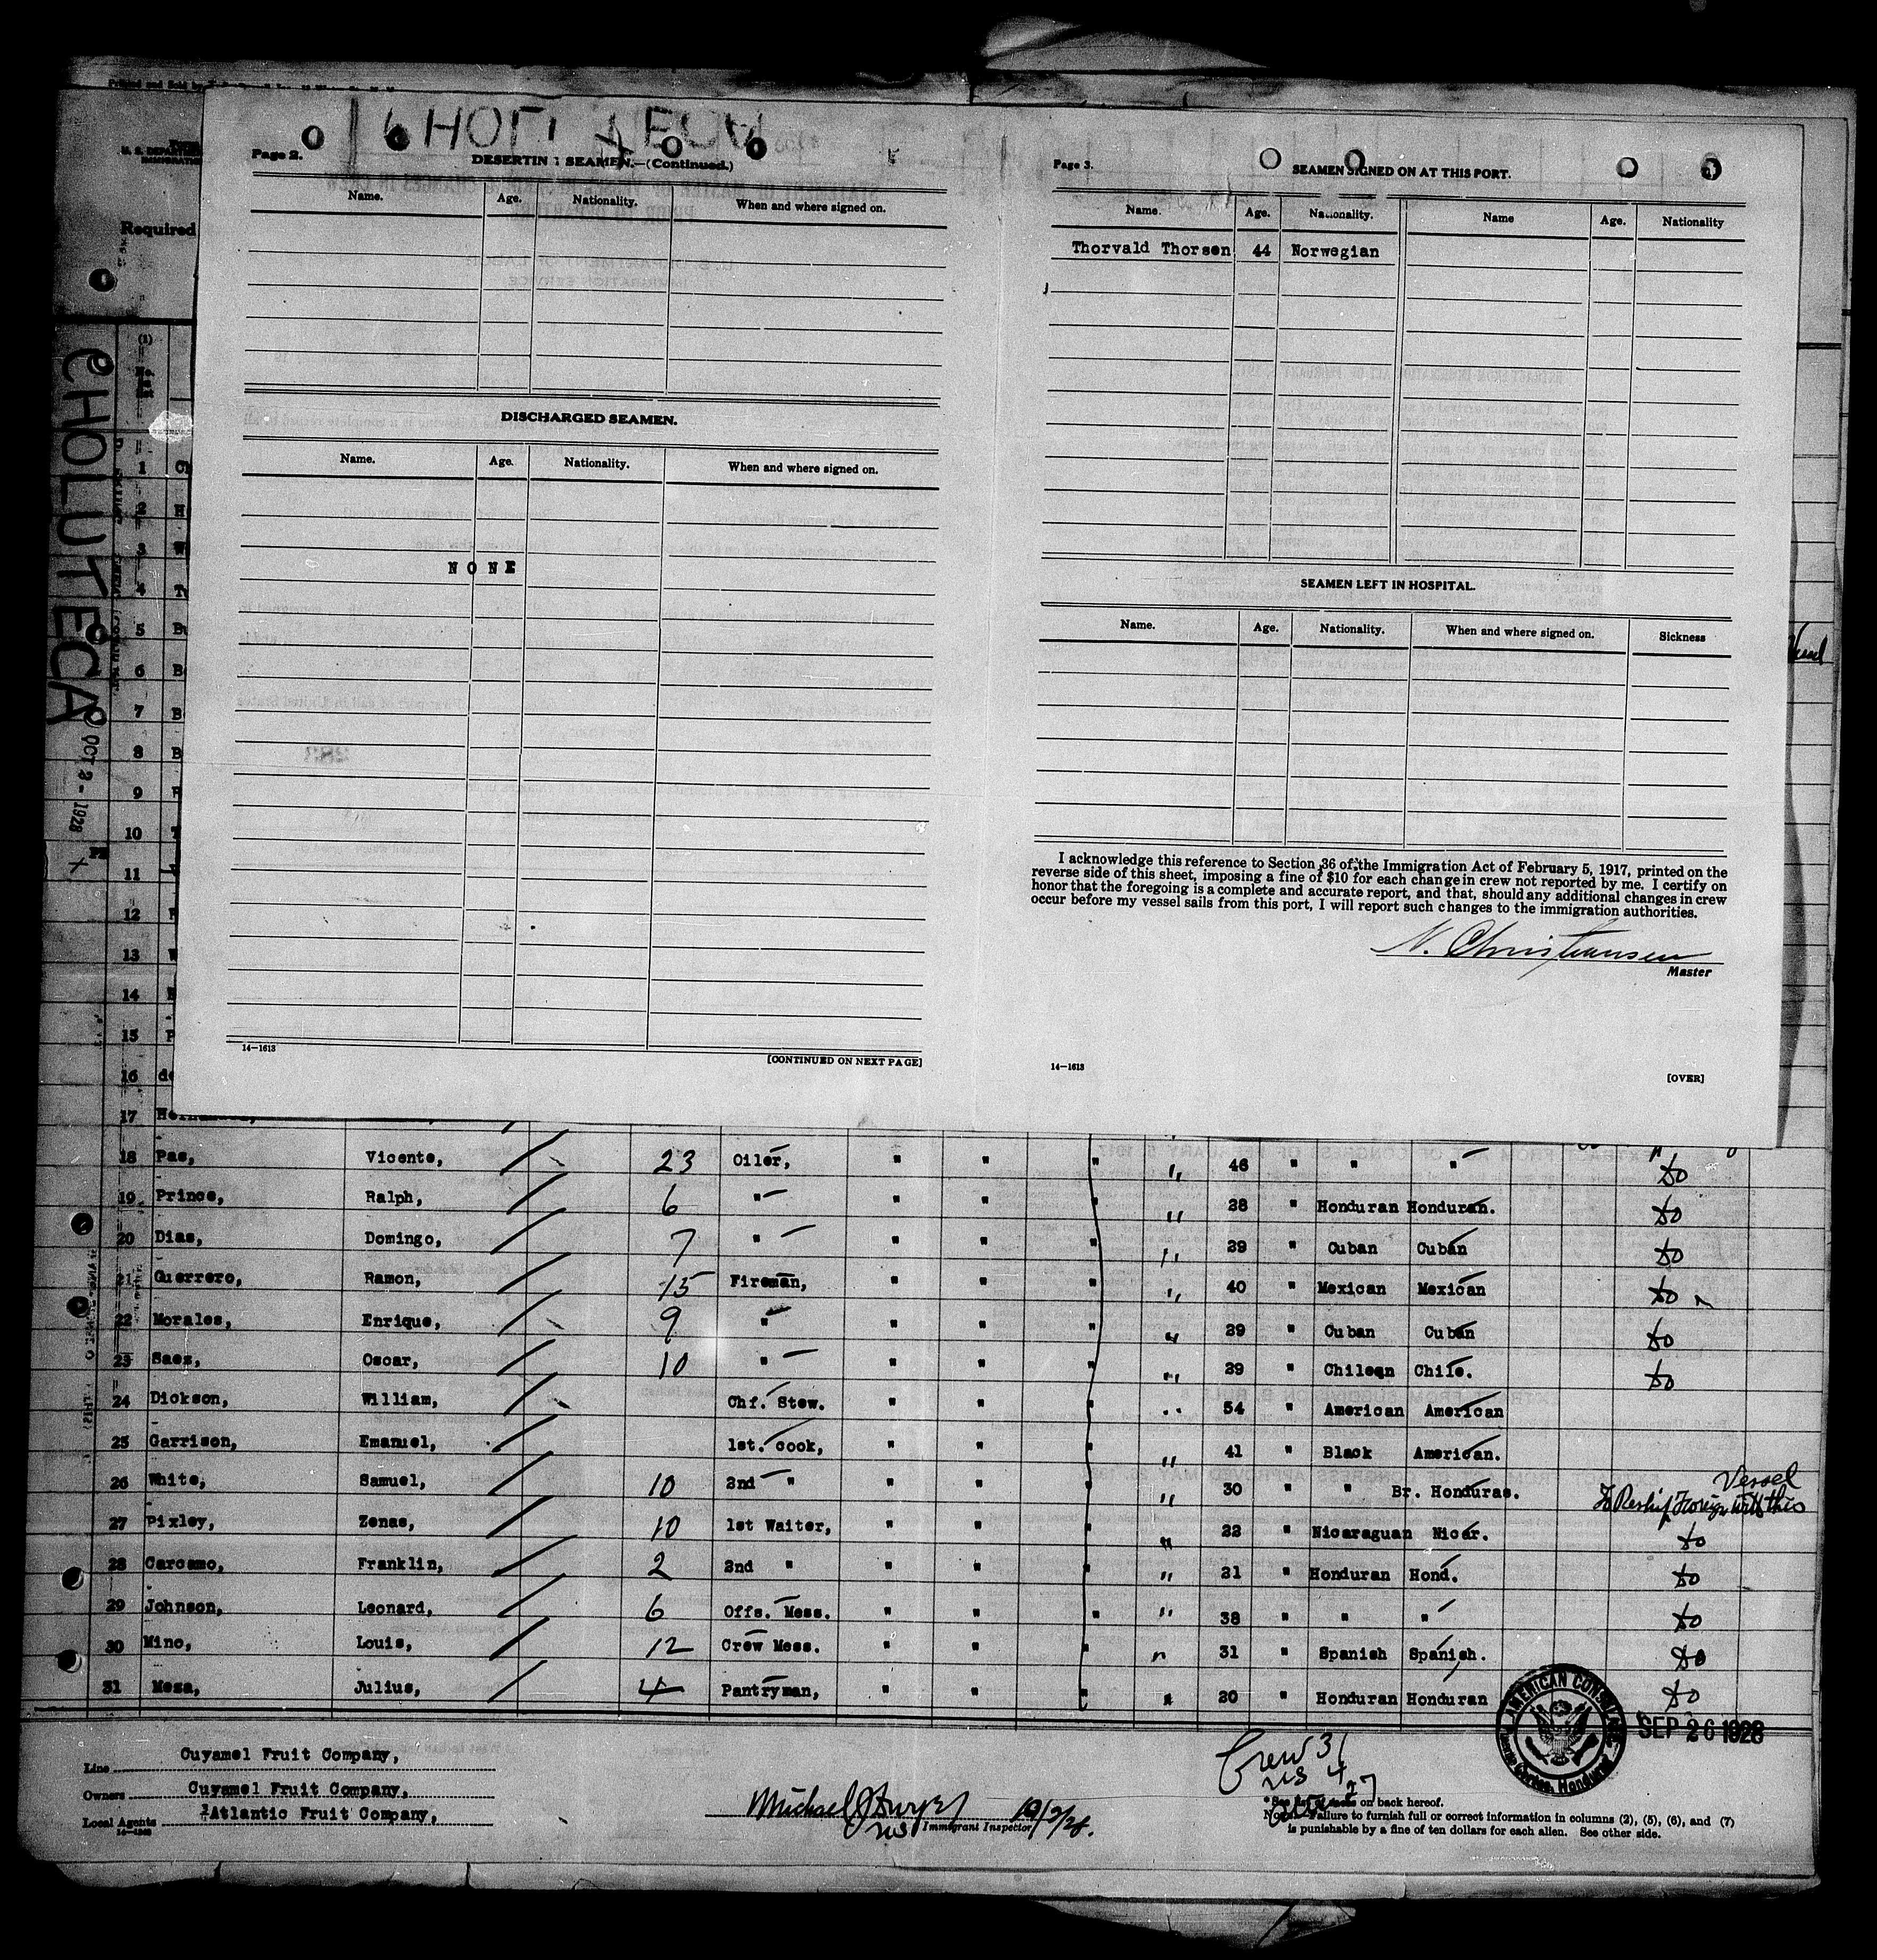 Page 2.
DESERTIN SEAMEN.—(Continued.)
Name. Age. Nationality. When and where signed on.
DISCHARGED SEAMEN.
Name. Age. Nationality. When and where signed on.
NONE
14—1613
[CONTINUED ON NEXT PAGE]
Page 3.
SEAMEN SIGNED ON AT THIS PORT.
Name. Age. Nationality. Name Age. Nationality
Thorvald Thorsen 44 Norwegian
SEAMEN LEFT IN HOSPITAL.
Name. Age. Nationality. When and where signed on. Sickness
I acknowledge this reference to Section 36 of the Immigration Act of February 5, 1917, printed on the
reverse side of this sheet, imposing a fine of $10 for each change in crew not reported by me. I certify on
honor that the foregoing is a complete and accurate report, and that, should any additional changes in crew
occur before my vessel sails from this port, I will report such changes to the immigration authorities.
N. Christiansen
Master
14—1613
[OVER]
Required
CHOLUTECA
OCT 2 - 1928
Vessel
1
2 H
3 W
4
5
6 B
7 B
8 B
9
10
11
12
13 W
14
15
16 de
17
18 Pas, Vicente, 23 Oiler, " " " " 46 " " " do
19 Prince, Ralph, 6 " " " " " 28 " Honduran Honduran. do
20 Dias, Domingo, 7 " " " " " 39 " Cuban Cuban do
21 Guerrero, Ramon, 15 Fireman, " " " " 40 " Mexican Mexican do
22 Morales, Enrique, 9 " " " " " 39 " Cuban Cuban do
23 Saez, Oscar, 10 " " " " " 39 " Chilean Chile. do
24 Dickson, William, Chf. Stew. " " " " 54 " American American
25 Garrison, Emanuel, 1st. cook, " " " " 41 " Black American.
26 White, Samuel, 10 2nd " " " " 30 " " Br. Honduras. To Reship Foreign with this Vessel
27 Pixley, Zenas, 10 1st Waiter, " " " " 22 " Nicaraguan Nicar. do
28 Carcamo, Franklin, 2 2nd " " " " " 21 " Honduran Hond. do
29 Johnson, Leonard, 6 Offs. Mess. " " " " 38 " " " do
30 Mino, Louis, 12 Crew Mess. " " " " 31 " Spanish Spanish. do
31 Meza, Julius, 4 Pantryman, " " " " 20 " Honduran Honduran do
AMERICAN CONSULATE
Puerto Cortes, Honduras
SEP 26 1928
Line Cuyamel Fruit Company,
Owners Cuyamel Fruit Company,
Local Agents Atlantic Fruit Company,
Immigrant Inspector
10/2/28.
Crew 31
US 4
27
* See list of races on back hereof.
NOTE.—Failure to furnish full or correct information in columns (2), (5), (6), and (7)
is punishable by a fine of ten dollars for each alien. See other side.